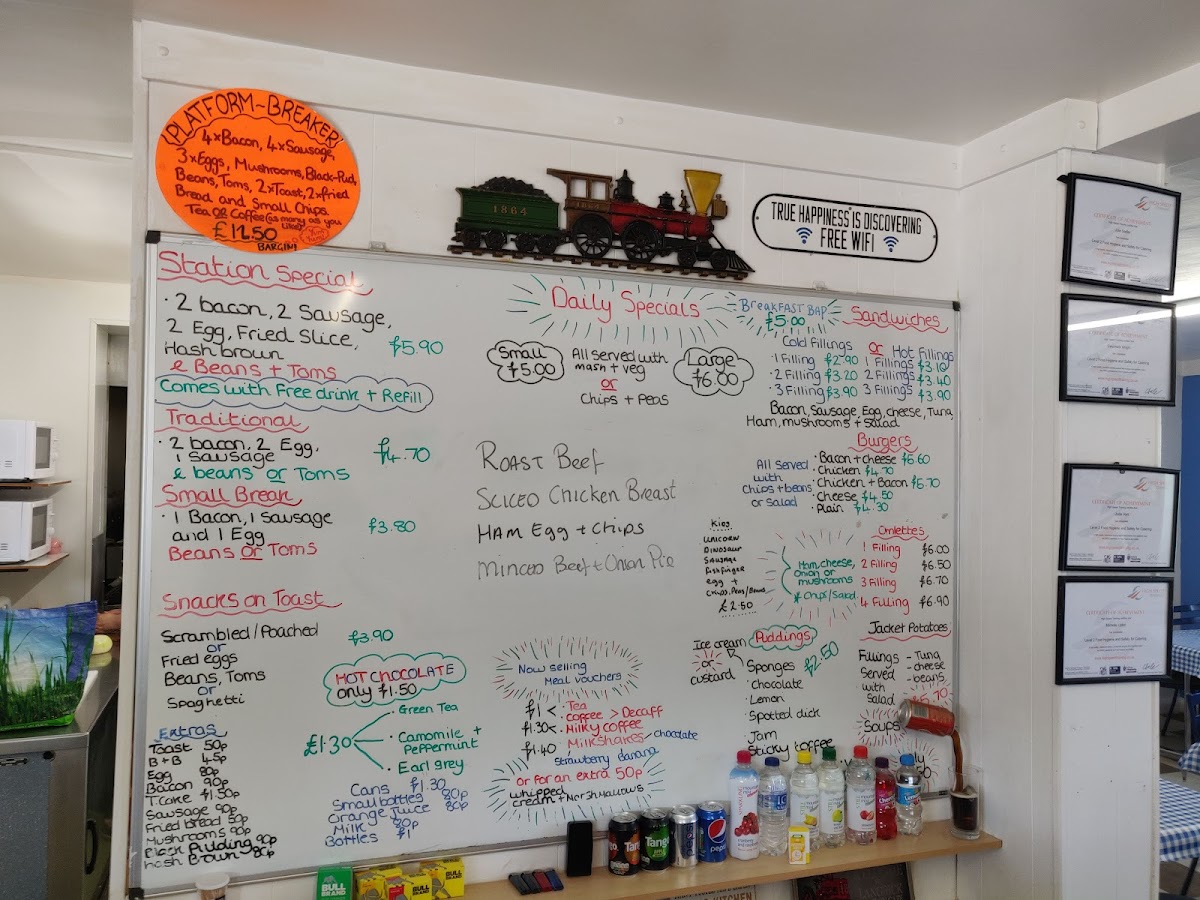 PLATFORM~BREAKER!
4xBacon, 4xSausage,
3xEggs, Mushrooms, Black-Pud,
Beans, Toms, 2xToast, 2xfried
Bread and Small Chips
Tea OR Coffee (as many as you
Like!)
£11.50
BARGIN!
1864
TRUE HAPPINESS IS DISCOVERING
FREE WIFI
Station Special
· 2 bacon, 2 Sausage,
2 Egg, Fried Slice,
Hash brown
£5.90
& Beans + Toms
Comes with Free drink + Refill
Traditional
· 2 bacon, 2 Egg,
1 sausage
£4.70
& beans or Toms
Small Break
· 1 Bacon, 1 Sausage
and 1 Egg
£3.80
Beans or Toms
Snacks on Toast
Scrambled/Poached
£3.90
or
Fried eggs
Beans, Toms
or
Spaghetti
Extras
Toast 50p
B+B 45p
Egg 80p
Bacon 90p
T.Cake £1.50p
Sausage 90p
Fried bread 50p
Mushrooms 90p
Black Pudding 90p
hash Brown 80p
HOT CHOCOLATE
only £1.50
£1.30
· Green Tea
· Camomile +
Peppermint
· Earl grey
Cans £1.30
Small bottles 80p
Orange Juice 80p
Milk
Bottles £1
Daily Specials
Small
£5.00
All served with
mash + veg
or
Chips + Peas
Large
£6.00
ROAST BEEF
SLICED CHICKEN BREAST
HAM EGG + CHIPS
MINCED BEEF + ONION PIE
Now selling
Meal vouchers
£1 < · Tea
· coffee > Decaff
£1.30 < · Milky coffee
£1.40 · Milkshakes chocolate
strawberry banana
or for an extra 50p
whipped
cream + Marshmallows
BREAKFAST BAP
£5.00
Sandwiches
Cold Fillings or Hot Fillings
1 Filling £2.90 1 Fillings £3.10
· 2 Filling £3.20 2 Fillings £3.40
· 3 Filling £3.90 3 Fillings £3.90
Bacon, Sausage, Egg, cheese, Tuna,
Ham, mushrooms + Salad
Burgers
All served
with
chips + beans
or salad
· Bacon + cheese £6.60
· Chicken £4.70
· Chicken + Bacon £5.70
· Cheese £4.50
· Plain £4.30
Kids
UNICORN
DINOSAUR
SAUSAGE
fishfinger
egg +
chips, Peas/Beans
£2.50
Ham, cheese,
Onion or
mushrooms
& Chips/Salad
Omlettes
1 Filling £6.00
2 Filling £6.50
3 Filling £6.70
4 Filling £6.90
Jacket Potatoes
Fillings
Served
with
Salad
- Tuna
- cheese
- beans
£5.70
Soups
Ice cream
or
custard
Puddings
£2.50
Sponges
· Chocolate
· Lemon
· Spotted dick
· Jam
Sticky toffee
CERTIFICATE OF ACHIEVEMENT
CERTIFICATE OF ACHIEVEMENT
CERTIFICATE OF ACHIEVEMENT
CERTIFICATE OF ACHIEVEMENT
Tango
Tango
pepsi
pepsi
BULL
BRAND
BULL
BRAND
BULL
BRAND